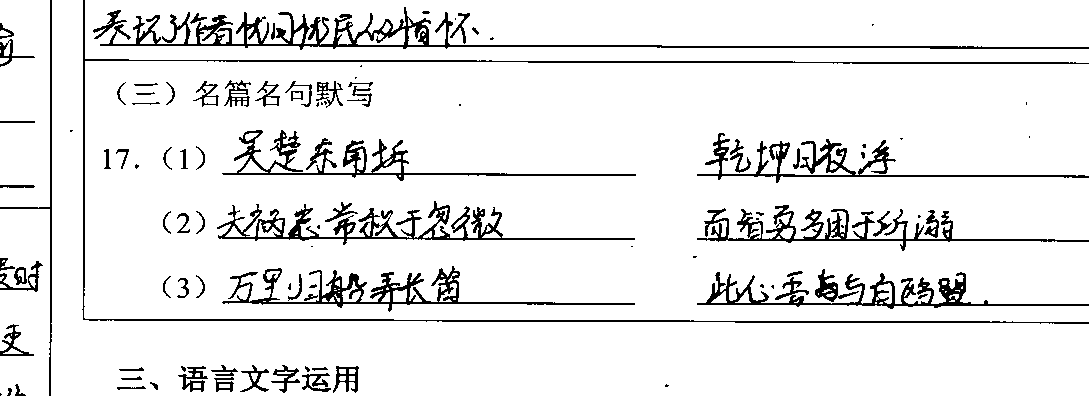 表现了作者忧国忧民的情怀.
(三)名篇名句默写
17.(1)吴楚东南坼 乾坤日夜浮
(2)夫祸患常积于忽微 而智勇多困于所溺
(3)万里归船弄长笛 此心吾与白鸥盟.
时
更
三、语言文字运用